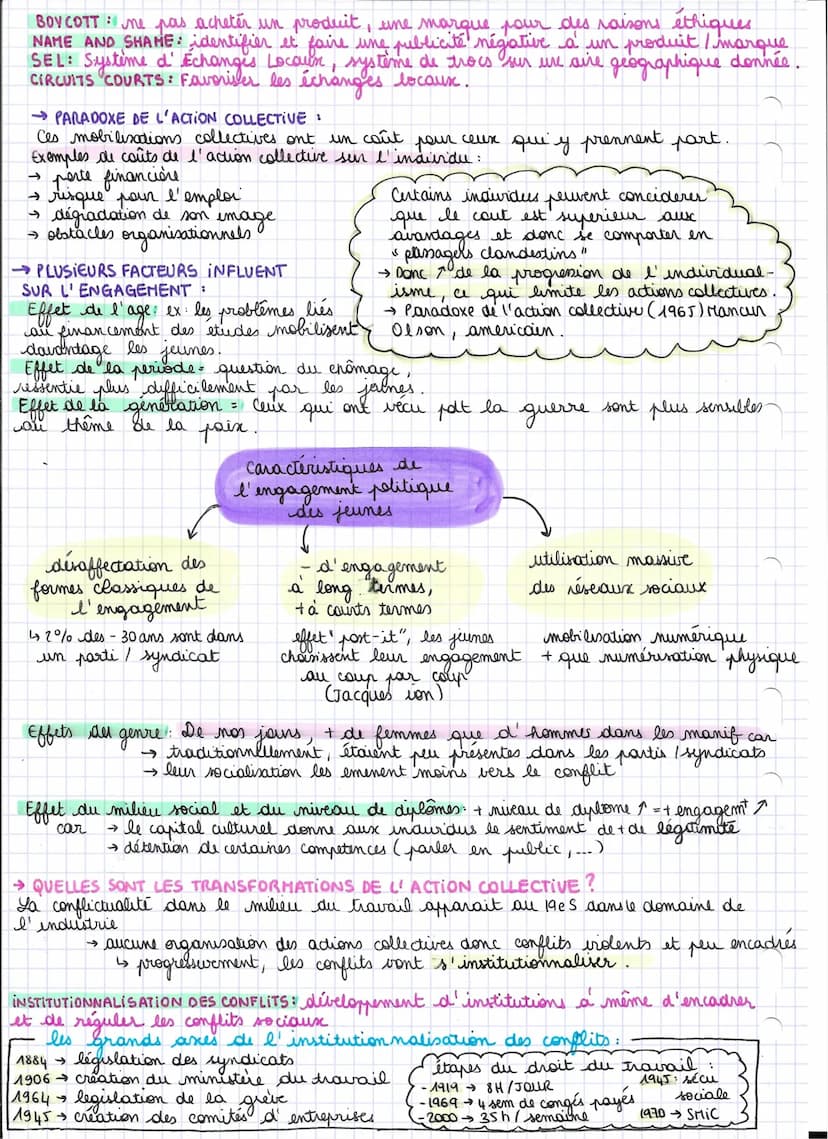 BOYCOTT : ne pas acheter un produit, une marque pour des raisons éthiques
NAME AND SHAME : identifier et faire une publicité négative à un produit / marque
SEL : Système d'Échanges Locaux, système de trocs sur une aire géographique donnée.
CIRCUITS COURTS : Favoriser les échanges locaux.
→ PARADOXE DE L'ACTION COLLECTIVE :
Ces mobilisations collectives ont un coût pour ceux qui y prennent part.
Exemples de coûts de l'action collective sur l'individu :
→ perte financière
→ risque pour l'emploi
→ dégradation de son image
→ obstacles organisationnels
Certains individus peuvent conciderer
que le cout est superieur aux
avantages et donc se comporter en
"passagers clandestins"
→ Donc ↗ de la progression de l'individual-
isme, ce qui limite les actions collectives.
→ Paradoxe de l'action collective (1965) Mancur
Olson, americain.
→ PLUSIEURS FACTEURS INFLUENT
SUR L'ENGAGEMENT :
Effet de l'age : ex : les problèmes liés
au financement des études mobilisent
davantage les jeunes.
Effet de la periode = question du chômage,
ressentie plus difficilement par les jeunes.
Effet de la génération = Ceux qui ont vécu pdt la guerre sont plus sensibles
au thême de la paix.
Caractéristiques de
l'engagement politique
des jeunes
désaffectation des
formes classiques de
l'engagement
↳ 2% des - 30 ans sont dans
un parti / syndicat
- d'engagement
à long termes,
+ à courts termes
effet "post-it", les jeunes
choisissent leur engagement
au coup par coup
(Jacques ion)
utilisation massive
des réseaux sociaux
mobilisation numérique
+ que numérisation physique
Effets du genre : De nos jours, + de femmes que d'hommes dans les manif car
→ traditionnellement, étaient peu présentes dans les partis / syndicats
→ leur socialisation les emenent moins vers le conflit
Effet du milieu social et du niveau de diplômes : + niveau de diplome ↗ = + engagemt ↗
car → le capital culturel donne aux individus le sentiment de + de légitimité
→ détention de certaines competences (parler en public, ...)
→ QUELLES SONT LES TRANSFORMATIONS DE L'ACTION COLLECTIVE ?
La conflictualité dans le milieu du travail apparait au 19e S dans le domaine de
l'industrie
→ aucune organisation des actions collectives donc conflits violents et peu encadrés
↳ progressivement, les conflits vont s'institutionnaliser.
INSTITUTIONNALISATION DES CONFLITS : développement d'institutions à même d'encadrer
et de réguler les conflits sociaux
les grands axes de l'institutionnalisation des conflits :
1884 → législation des syndicats
1906 → création du ministère du travail
1964 → legislation de la grève
1945 → création des comités d'entreprises
étapes du droit du travail :
- 1919 → 8H/JOUR
- 1969 → 4 sem de congés payés
- 2000 → 35h / semaine
1945 : sécu
sociale
1970 → SMIC